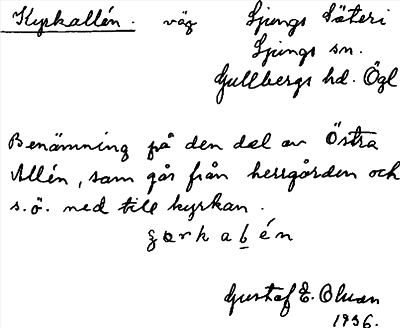 Kyrkallén. väg Ljungs Säteri
Ljungs sn.
Gullbergs hd. Ögl
Benämning på den del av Östra
Allén, som går från herrgården och
s.ö. ned till kyrkan.
Gustaf E.
1936.